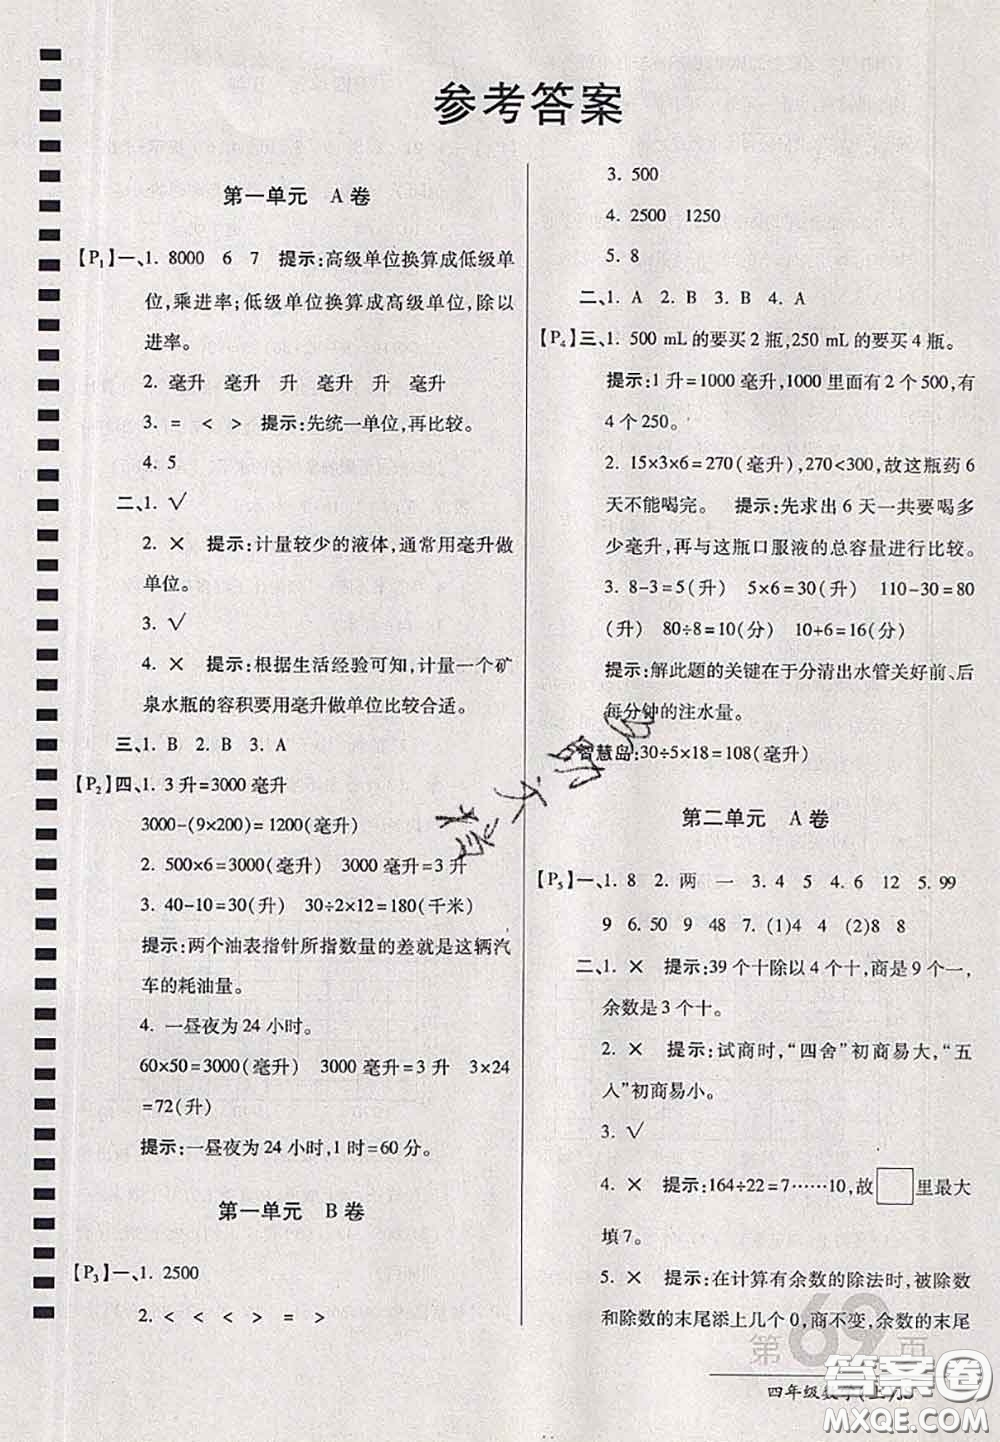 参考答案
第一单元 A卷
【P1】一、1. 8000 6 7 提示:高级单位换算成低级单
位,乘进率;低级单位换算成高级单位,除以
进率。
2. 毫升 毫升 升 毫升 升 毫升
3. = < > 提示:先统一单位,再比较。
4. 5
二、1. √
2. × 提示:计量较少的液体,通常用毫升做
单位。
3. √
4. × 提示:根据生活经验可知,计量一个矿
泉水瓶的容积要用毫升做单位比较合适。
三、1. B 2. B 3. A
【P2】四、1. 3升=3000毫升
3000-(9×200)=1200(毫升)
2. 500×6=3000(毫升) 3000毫升=3升
3. 40-10=30(升) 30÷2×12=180(千米)
提示:两个油表指针所指数量的差就是这辆汽
车的耗油量。
4. 一昼夜为24小时。
60×50=3000(毫升) 3000毫升=3升 3×24
=72(升)
提示:一昼夜为24小时,1时=60分。
第一单元 B卷
【P3】一、1. 2500
2. < < < < > = >
3. 500
4. 2500 1250
5. 8
二、1. A 2. B 3. B 4. A
【P4】三、1. 500 mL的要买2瓶,250 mL的要买4瓶。
提示:1升=1000毫升,1000里面有2个500,有
4个250。
2. 15×3×6=270(毫升),270<300,故这瓶药6
天不能喝完。 提示:先求出6天一共要喝多
少毫升,再与这瓶口服液的总容量进行比较。
3. 8-3=5(升) 5×6=30(升) 110-30=80
(升) 80÷8=10(分) 10+6=16(分)
提示:解此题的关键在于分清出水管关好前、后
每分钟的注水量。
智慧岛:30÷5×18=108(毫升)
第二单元 A卷
【P5】一、1. 8 2. 两 一 3. 4 5 4. 6 12 5. 99
9 6. 50 9 48 7. (1)4 4 (2)8 8
二、1. × 提示:39个十除以4个十,商是9个一,
余数是3个十。
2. × 提示:试商时,“四舍”初商易大,“五
入”初商易小。
3. √
4. × 提示:164÷22=7……10,故□里最大
填7。
5. × 提示:在计算有余数的除法时,被除数
和除数的末尾添上几个0,商不变,余数的末尾
第69页
四年级数学(上)
答案圈
MXQE.COM